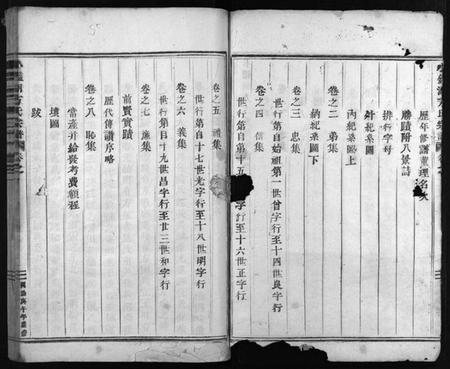 歷年修譜董理名次
勝蹟附八景詩
排行字母
外紀系圖
內紀系圖上
卷之二 弟集
納紀系圖下
卷之三 忠集
世行第自始祖第一世曾字行至十四世良字行
卷之四 信集
世行第自第十五 字行至十六世正字行
卷之五 禮集
世行第自十七世光字行至十八世明字行
卷之六 義集
世行第自十九世昌字行至廿三世和字行
卷之七 廉集
前賢實蹟
歷代傳讚序略
卷之八 恥集
當產并給養考費額程
墳圖
跋